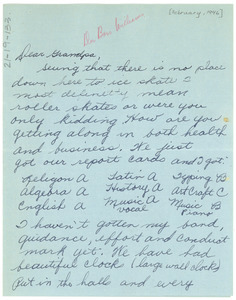 [February, 1946]
21-19-135
Dear Grandpa
Seeing that there is no place
down here to ice skate I
most definitely mean
roller skates or were you
only kidding. How are you
getting along in both health
and business. We just
got our report cards and I got
Religion A Latin A Typing B
Algebra A History A Art Craft C
English A Music A vocal Music B Piano
I haven't gotten my band,
guidance, effort and conduct
mark yet. We have had
beautiful clock (large wall clocks)
put in the halls and every